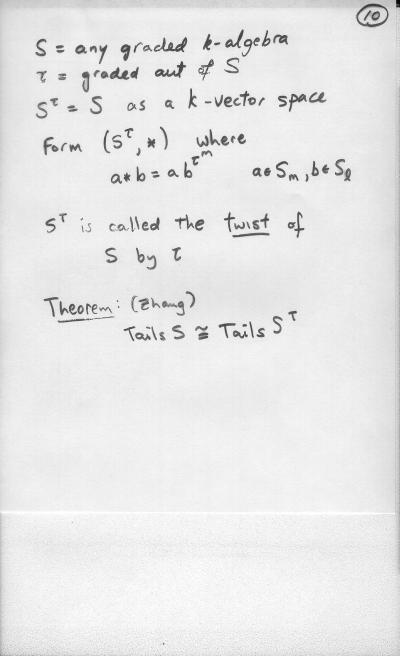 10
S = any graded k-algebra
τ = graded aut of S
S^τ = S as a k-vector space
Form (S^τ, *) where
a*b = ab^τ^m a∈S_m, b∈S_ℓ
S^τ is called the twist of
S by τ
Theorem: (Zhang)
Tails S ≅ Tails S^τ